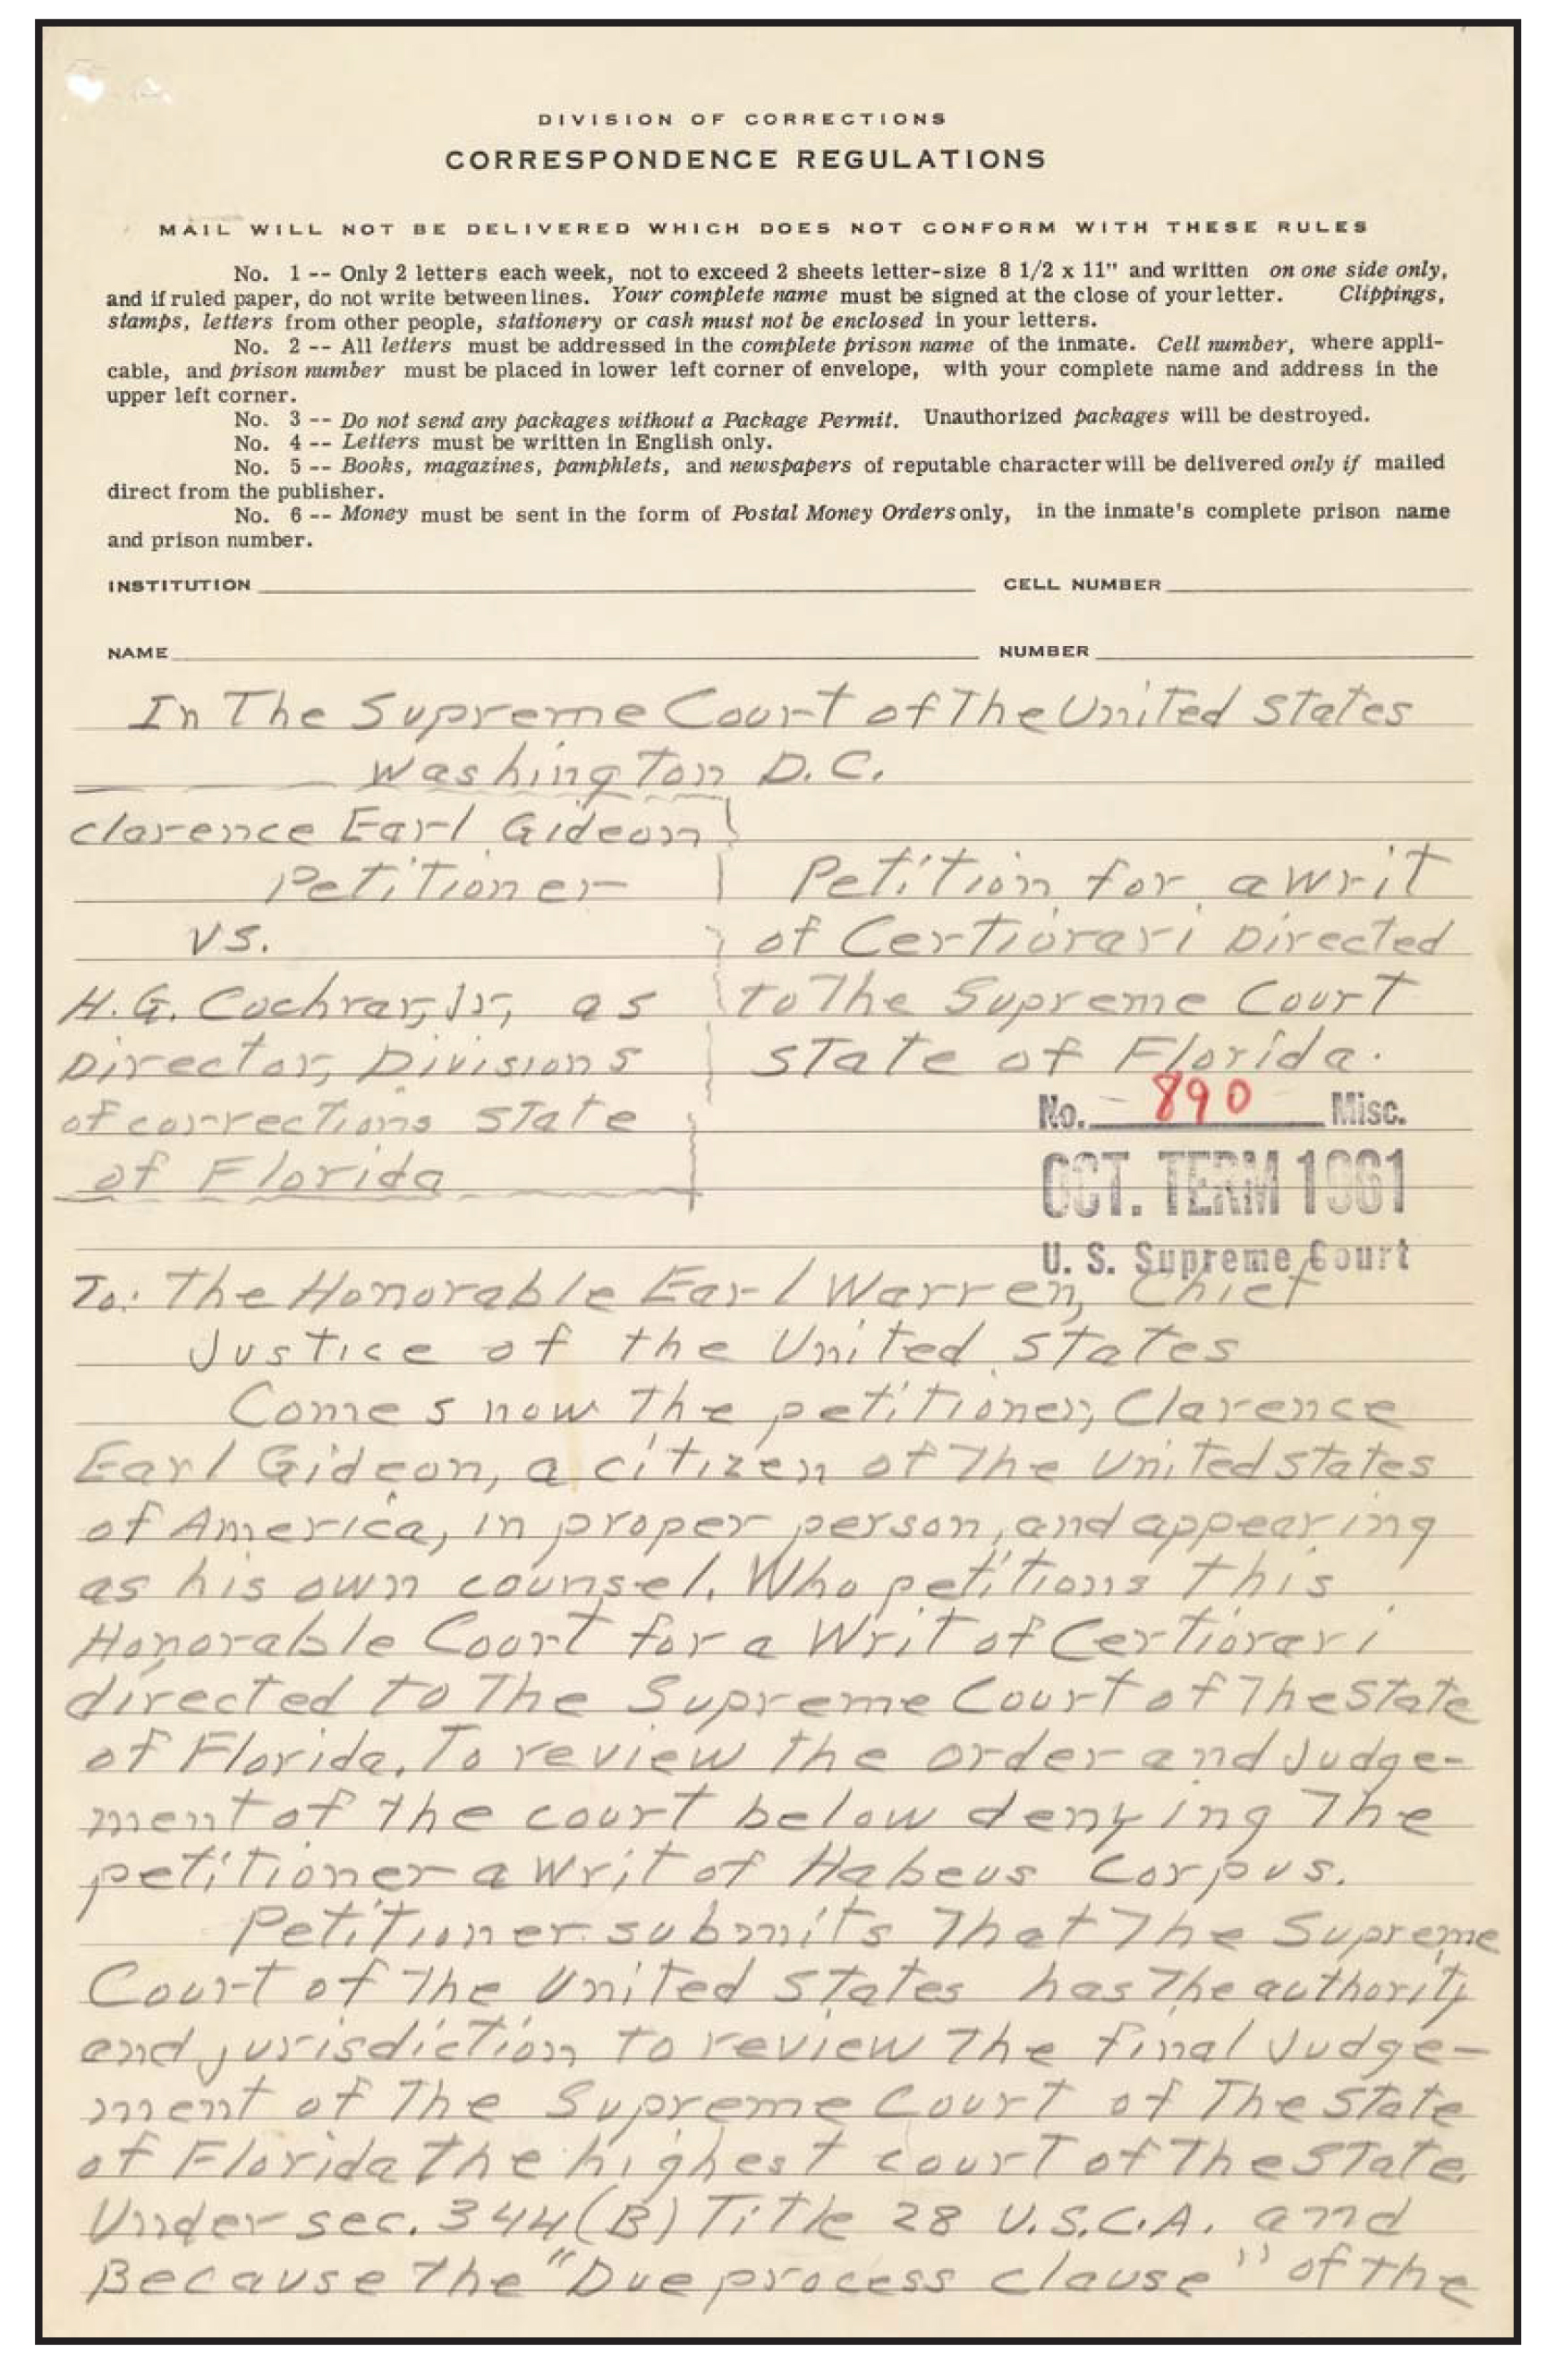 DIVISION OF CORRECTIONS
CORRESPONDENCE REGULATIONS
MAIL WILL NOT BE DELIVERED WHICH DOES NOT CONFORM WITH THESE RULES
No. 1 -- Only 2 letters each week, not to exceed 2 sheets letter-size 8 1/2 x 11" and written on one side only,
and if ruled paper, do not write between lines. Your complete name must be signed at the close of your letter. Clippings,
stamps, letters from other people, stationery or cash must not be enclosed in your letters.
No. 2 -- All letters must be addressed in the complete prison name of the inmate. Cell number, where appli-
cable, and prison number must be placed in lower left corner of envelope, with your complete name and address in the
upper left corner.
No. 3 -- Do not send any packages without a Package Permit. Unauthorized packages will be destroyed.
No. 4 -- Letters must be written in English only.
No. 5 -- Books, magazines, pamphlets, and newspapers of reputable character will be delivered only if mailed
direct from the publisher.
No. 6 -- Money must be sent in the form of Postal Money Orders only, in the inmate's complete prison name
and prison number.
INSTITUTION CELL NUMBER
NAME NUMBER
In The Supreme Court of The United States
Washington D.C.
Clarence Earl Gideon
Petitioner
vs.
H.G. Cochran, Jr, as
Director, Divisions
of corrections State
of Florida
Petition for a writ
of Certiorari Directed
to The Supreme Court
State of Florida.
No. - 890 Misc.
OCT. TERM 1961
U. S. Supreme Court
To: The Honorable Earl Warren, Chief
Justice of the United States
Comes now The petitioner, Clarence
Earl Gideon, a citizen of The United states
of America, in proper person, and appearing
as his own counsel. Who petitions this
Honorable Court for a Writ of Certiorari
directed to The Supreme Court of The State
of Florida. To review the order and Judge-
ment of the court below denying The
petitioner a writ of Habeus Corpus.
Petitioner submits That The Supreme
Court of The United States has The authority
and jurisdiction to review The final Judge-
ment of The Supreme Court of The State
of Florida the highest court of The State
Under sec. 344(B) Title 28 U.S.C.A. and
Because the "Due process clause" of the